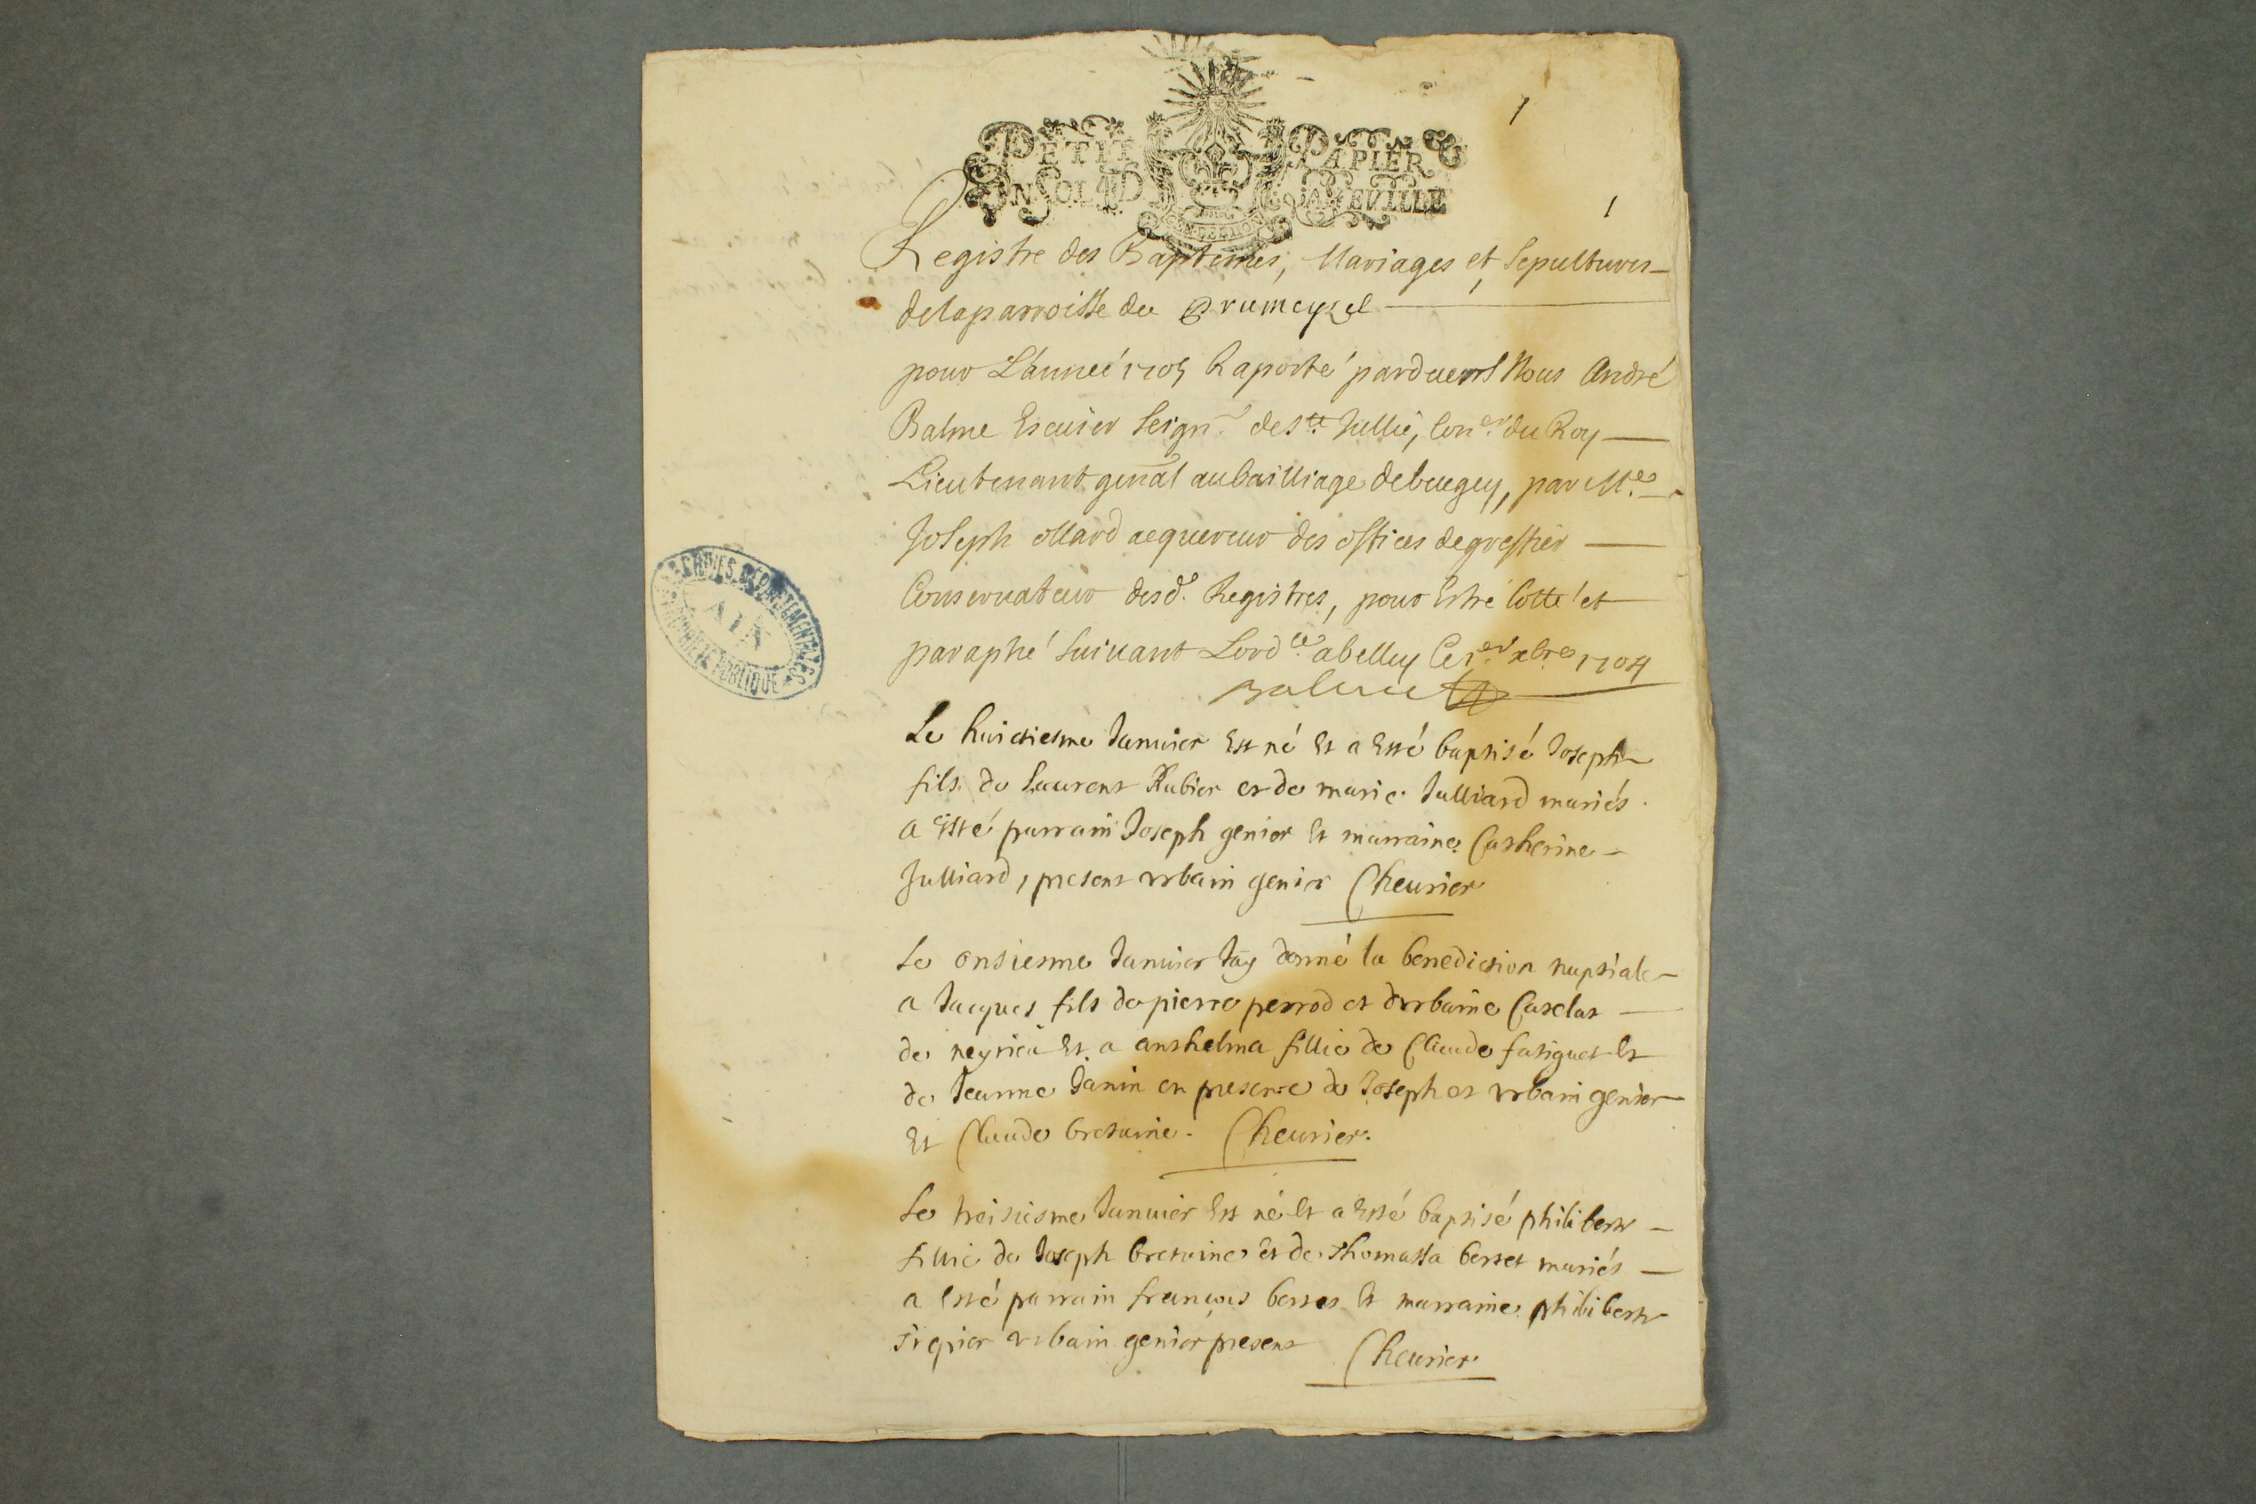 1
PETIT PAPIER
UN SOL 4 D LA FEUILLE
1
Registre des Baptesmes, Mariages et Sepultures
de la parroisse de Prumeyzel
pour L'année 1705 Raporté parduent Nous André
Balme Escuier Seignr de Ste Jullie, Coner du Roy
Lieutenant gnâl au bailliage de bugey, par Me
Joseph ollard acquereur des offices de greffier
Conservateur desd. Registres, pour Estre Cotté et
paraphé suivant Lordce a belley Ce 1er xbre 1704
Balme
Le huictiesme Januier Est né Et a Esté baptisé Joseph
fils de Laurent Rubier et de marie Julliard mariés
a Esté parrain Joseph genier Et marraine Catherine
Julliard, present vrbain genier Cheurier
Le onsiesme Januier Jay donné la benediction nuptiale
a Jacques fils de pierre perrod et durbaine Caselat
de neyrieu Et a anthelma fillie de Claude fatiguet Et
de Jeanne Janin en presence de Joseph et vrbain genier
Et Claude bretaine. Cheurier.
Le troisiesme Januier Est né Et a Esté baptisé philiberte
fillie de Joseph bretaine et de thomassa berset mariés
a Esté parrain francois berset Et marraine philiberte
vrbain genier present Cheurier
ARCHIVES DÉPARTEMENTALES
AIN
PROPRIÉTÉ PUBLIQUE